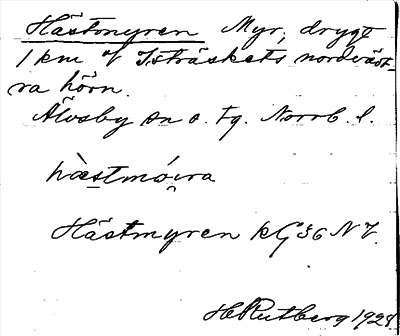 Hästmyren Myr, drygt
1 km v Isträskets nordväst-
ra hörn.
Älvsby sn o. tg. Norrb. l.
hæ̀stmóira
Hästmyren kG 36 NV.
H Rutberg 1928